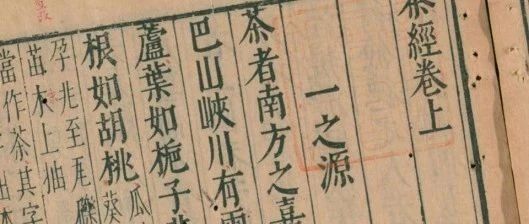 茶經卷上
一之源
茶者南方之嘉
巴山峽川有
蘆葉如梔子花
根如胡桃瓜
葵
孕兆至瓦礫
苗木上抽
當作茶其字